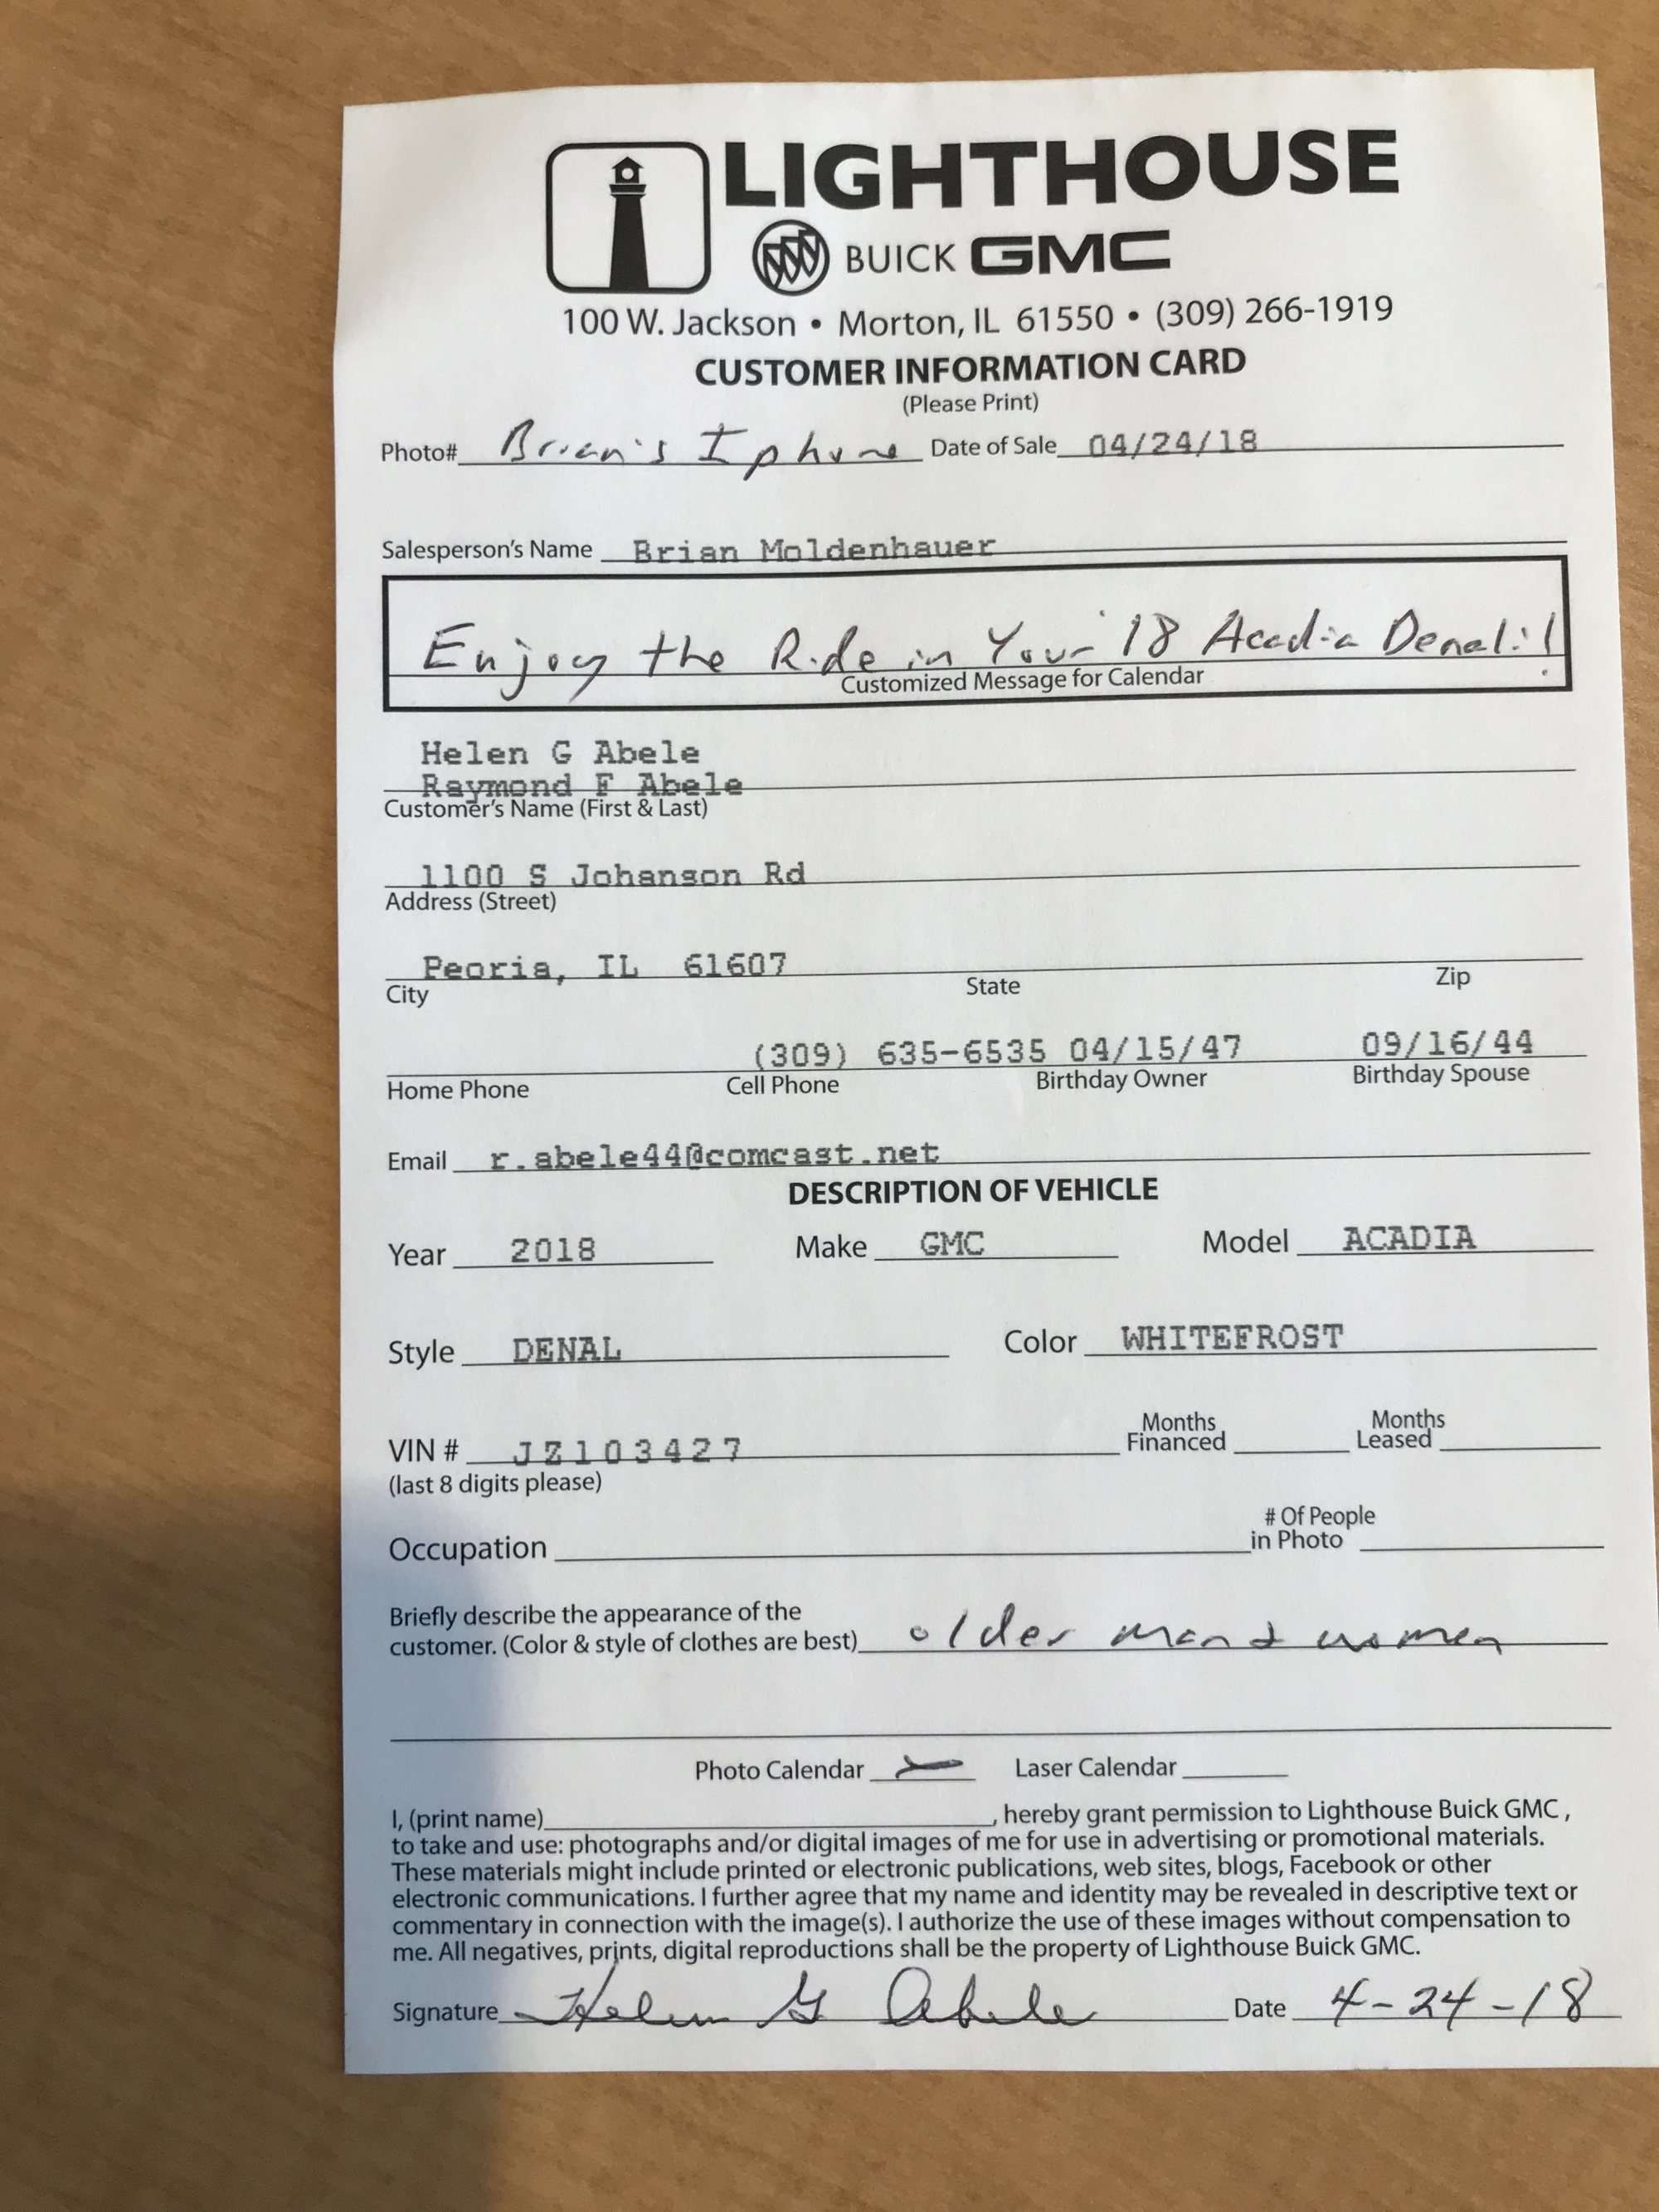 LIGHTHOUSE
BUICK GMC
100 W. Jackson • Morton, IL 61550 • (309) 266-1919
CUSTOMER INFORMATION CARD
(Please Print)
Photo# Brian's Iphone Date of Sale 04/24/18
Salesperson's Name Brian Moldenhauer
Enjoy the Ride in Your '18 Acadia Denali!!
Customized Message for Calendar
Helen G Abele
Raymond F Abele
Customer's Name (First & Last)
1100 S Johanson Rd
Address (Street)
Peoria, IL 61607
City State Zip
(309) 635-6535 04/15/47 09/16/44
Home Phone Cell Phone Birthday Owner Birthday Spouse
Email r.abele44@comcast.net
DESCRIPTION OF VEHICLE
Year 2018 Make GMC Model ACADIA
Style DENAL Color WHITEFROST
VIN # JZ103427 Months Financed Months Leased
(last 8 digits please)
Occupation # Of People in Photo
Briefly describe the appearance of the
customer. (Color & style of clothes are best) older man & women
Photo Calendar Laser Calendar
I, (print name) , hereby grant permission to Lighthouse Buick GMC ,
to take and use: photographs and/or digital images of me for use in advertising or promotional materials.
These materials might include printed or electronic publications, web sites, blogs, Facebook or other
electronic communications. I further agree that my name and identity may be revealed in descriptive text or
commentary in connection with the image(s). I authorize the use of these images without compensation to
me. All negatives, prints, digital reproductions shall be the property of Lighthouse Buick GMC.
Signature Helen G Abele Date 4-24-18